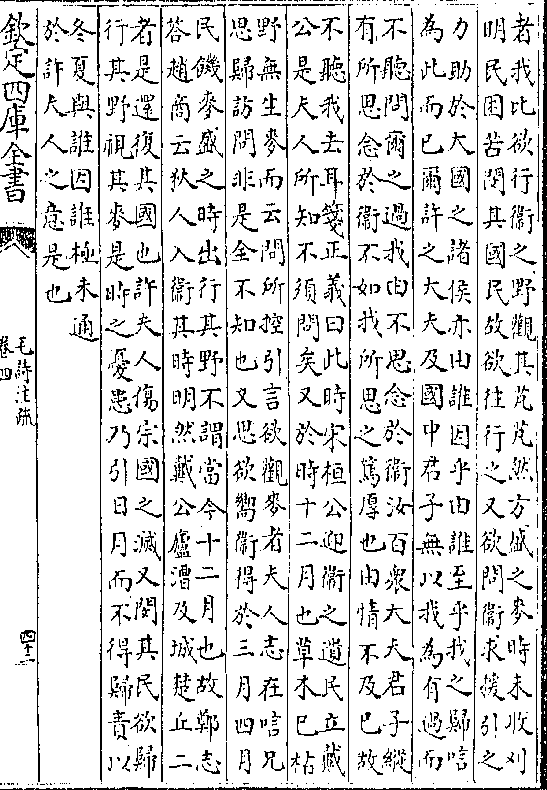 者我比欲行衛之野觀其芃芃然方盛之麥時未收刈
明民困苦閔其國民故欲往行之又欲問衛求援引之
力助於大國之諸侯亦由誰因乎由誰至乎我之歸唁
為此而已爾許之大夫及國中君子無以我為有過而
不聽問爾之過我由不思念於衛汝百衆大夫君子縱
有所思念於衛不如我所思之篤厚也由情不及已故
不聽我去耳箋正義曰此時宋桓公迎衛之遺民立戴
公是夫人所知不須問矣又於時十二月也草木已枯
野無生麥而云問所控引言欲觀麥者夫人志在唁兄
思歸訪問非是全不知也又思欲嚮衛得於三月四月
民饑麥盛之時出行其野不謂當今十二月也故鄭志
答趙商云狄人入衛其時明然戴公廬漕及城楚丘二
者是還復其國也許夫人傷宗國之滅又閔其民欲歸
行其野視其麥是時之憂患乃引日月而不得歸責以
冬夏與誰因誰極未通
於許夫人之意是也
欽定四庫全書
毛詩注疏
卷四